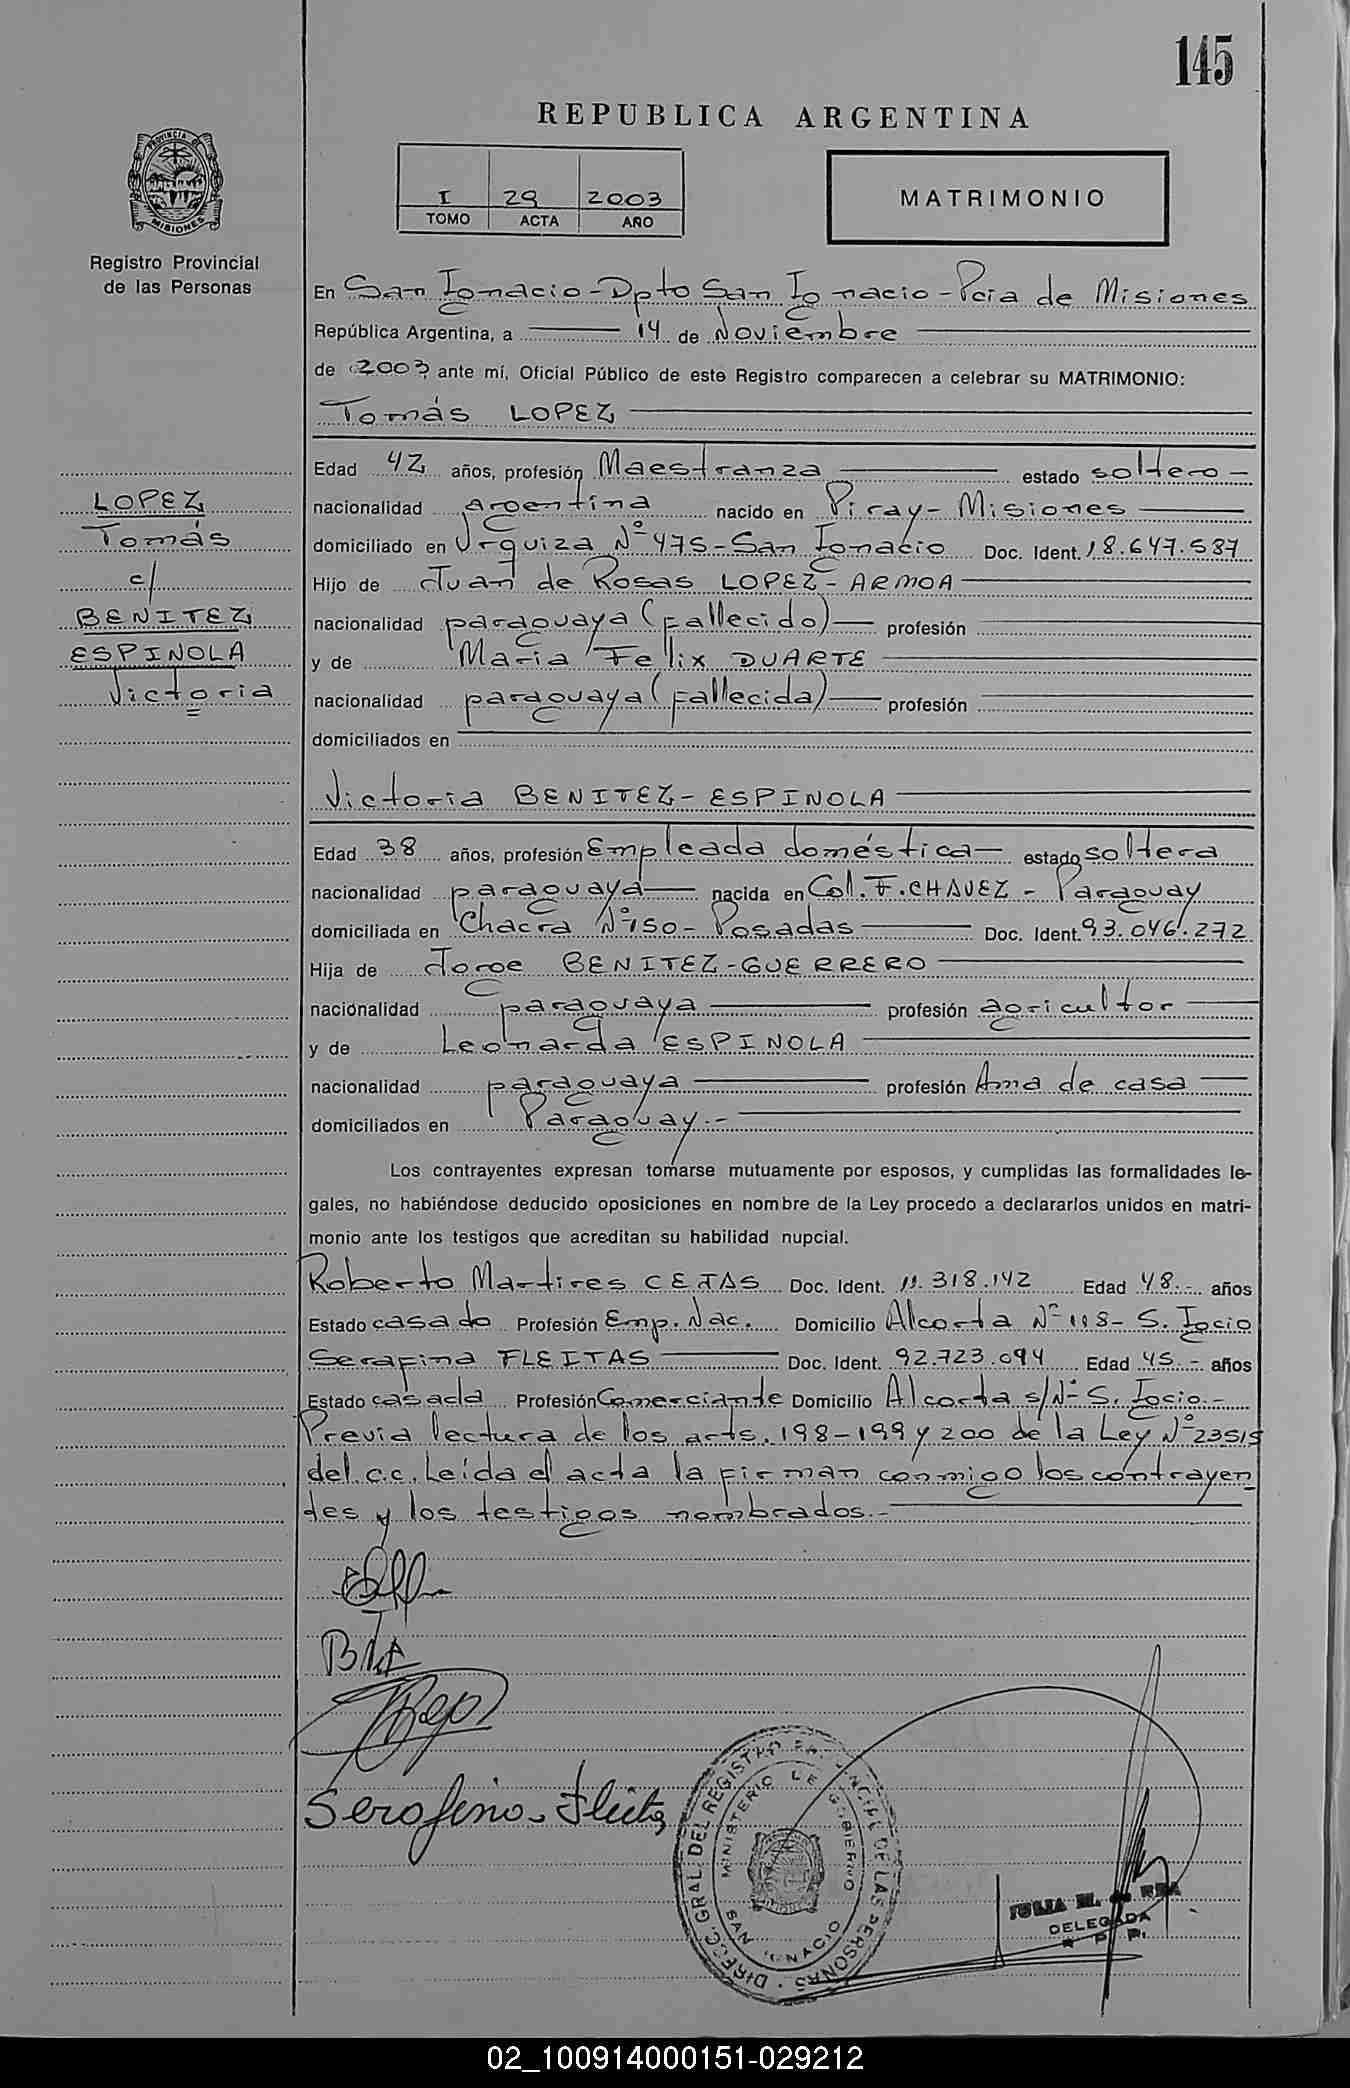 145
REPUBLICA ARGENTINA
I 29 2003
TOMO ACTA AÑO
MATRIMONIO
PROVINCIA DE MISIONES
Registro Provincial
de las Personas
En San Ignacio - Dpto San Ignacio - Pcia de Misiones
República Argentina, a 14 de Noviembre
de 2003 ante mí, Oficial Público de este Registro comparecen a celebrar su MATRIMONIO:
Tomás LOPEZ
Edad 42 años, profesión Maestranza estado soltero
nacionalidad argentina nacido en Piray - Misiones
domiciliado en Urquiza Nº 475 - San Ignacio Doc. Ident. 18.647.587
Hijo de Juan de Rosas LOPEZ - ARMOA
nacionalidad paraguaya (fallecido) profesión
y de María Felix DUARTE
nacionalidad paraguaya (fallecida) profesión
domiciliados en
LOPEZ
Tomás
c/
BENITEZ
ESPINOLA
Victoria
Victoria BENITEZ - ESPINOLA
Edad 38 años, profesión Empleada doméstica estado soltera
nacionalidad paraguaya nacida en Col. F. CHAVEZ - Paraguay
domiciliada en Chacra Nº 150 - Posadas Doc. Ident. 93.046.272
Hija de Jorge BENITEZ - GUERRERO
nacionalidad paraguaya profesión agricultor
y de Leonarda ESPINOLA
nacionalidad paraguaya profesión Ama de casa
domiciliados en Paraguay.-
Los contrayentes expresan tomarse mutuamente por esposos, y cumplidas las formalidades le-
gales, no habiéndose deducido oposiciones en nombre de la Ley procedo a declararlos unidos en matri-
monio ante los testigos que acreditan su habilidad nupcial.
Roberto Martires CEJAS Doc. Ident. 11.318.142 Edad 48.- años
Estado casado Profesión Emp. Nac. Domicilio Alcorta Nº 118 - S. Igcio
Serafina FLEITAS Doc. Ident. 92.723.094 Edad 45.- años
Estado casada Profesión Comerciante Domicilio Alcorta s/Nº S. Igcio.-
Previa lectura de los arts. 198-199 y 200 de la Ley Nº 23515
del C.C. Leída el acta la firman conmigo los contrayen
tes y los testigos nombrados.-
Serafina Fleitas
DIREC. GRAL. DEL REGISTRO PROVINCIAL DE LAS PERSONAS
MINISTERIO DE GOBIERNO
SAN IGNACIO
JULIA M. de
DELEGADA
R P P.
02_100914000151-029212